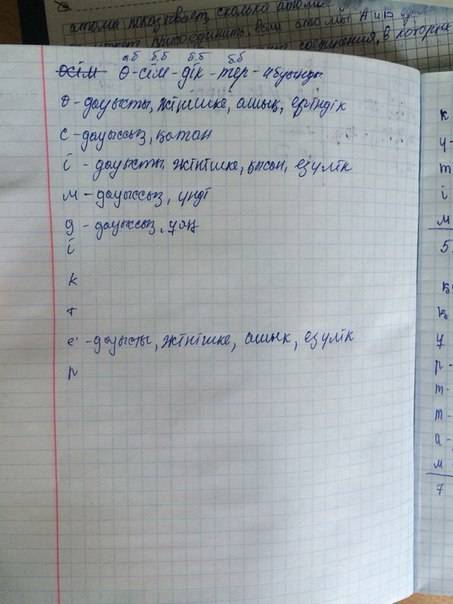 атома показывает, сколько атомов
А и В
соединения, в которых
а.б б.б б.б б.б
өсім Ө-сім-дік-тер-4буынды
ө-дауысты, жіңішке, ашық, еріндік
с-дауыссыз, қатаң
і-дауысты, жіңішке, қысаң, езулік
м-дауыссыз, үнді
д-дауыссыз, ұяң
і
к
т
е-дауысты, жіңішке, ашық, езулік
р
к
у-
т
і
м
5.
қ
ұ
р-
т-
т-
а-
м
7